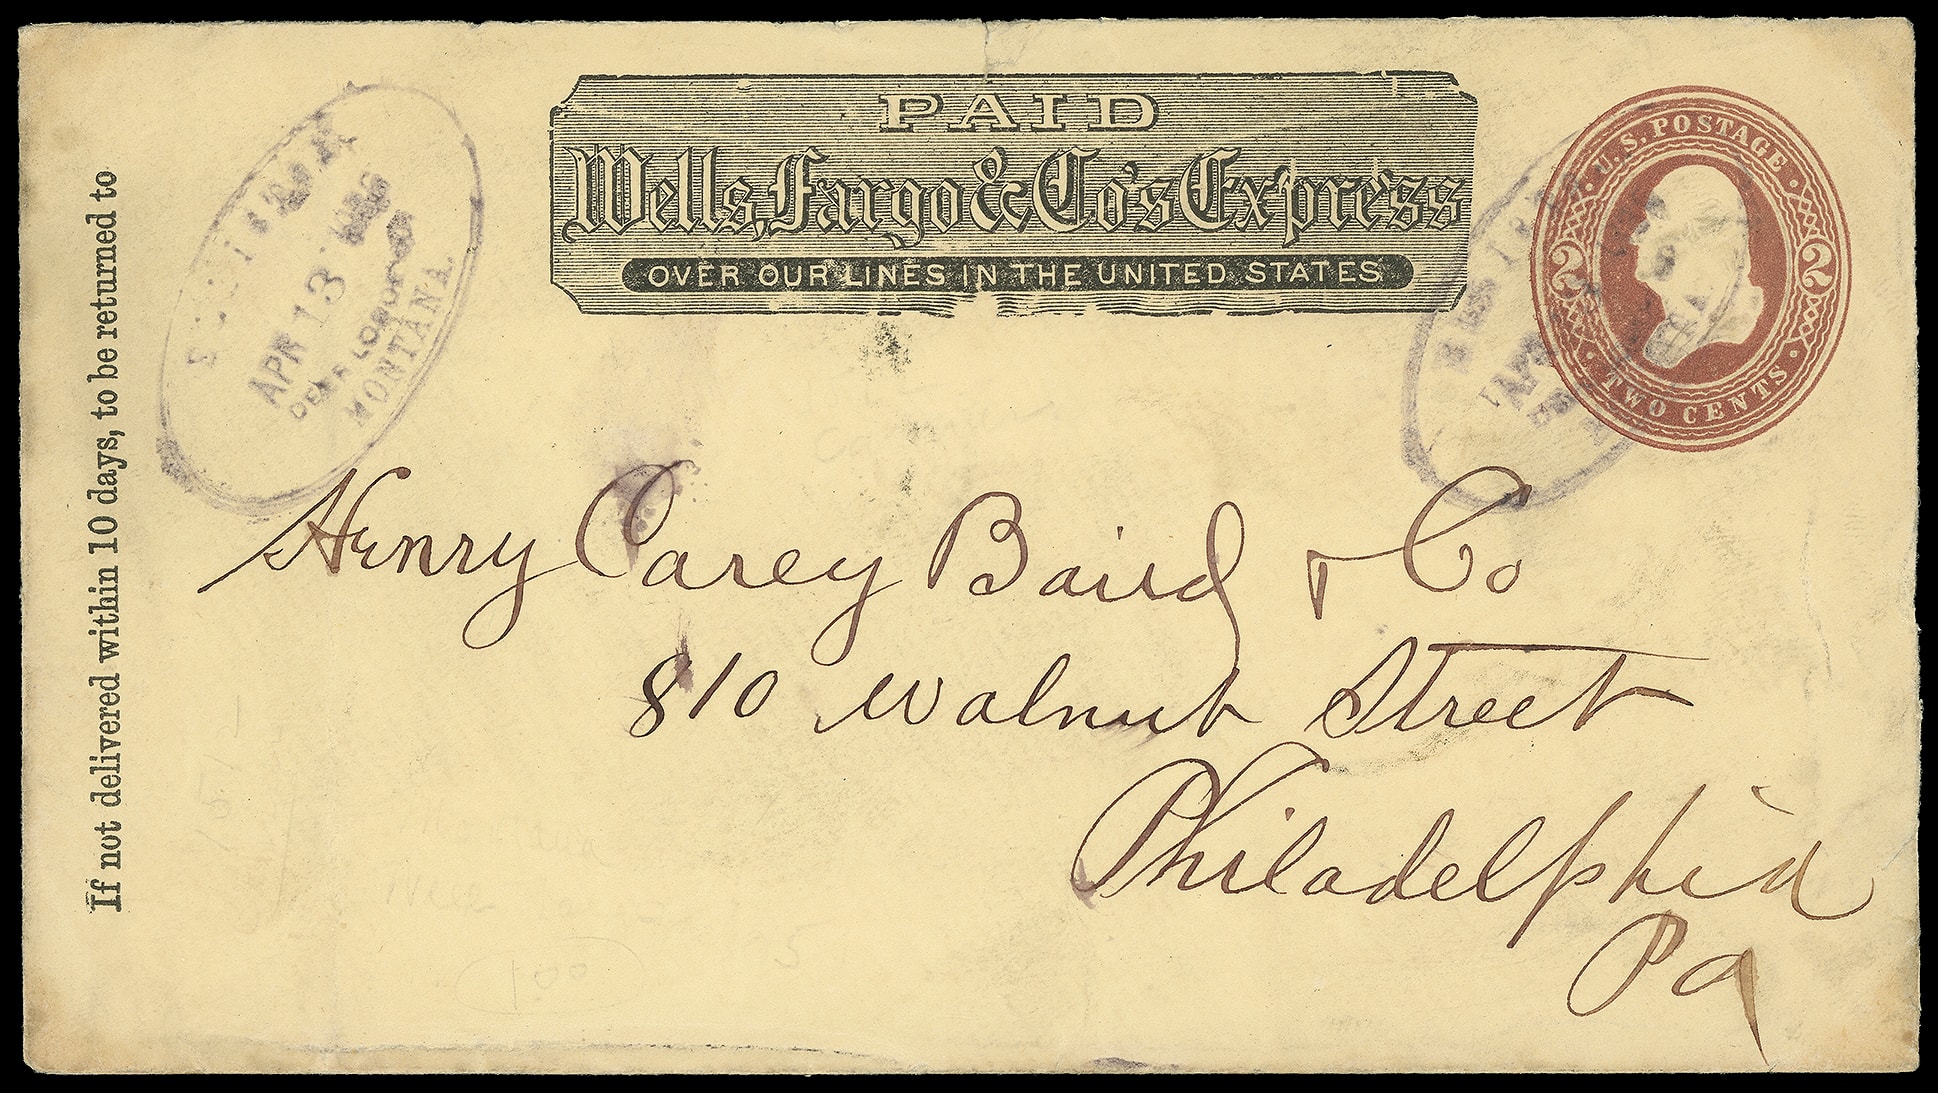 PAID
Wells, Fargo & Co's Express
OVER OUR LINES IN THE UNITED STATES
U.S. POSTAGE
2 2
TWO CENTS
APR 13
DEER LODGE
MONTANA.
APR
If not delivered within 10 days, to be returned to
Henry Carey Baird & Co
810 Walnut Street
Philadelphia
Pa